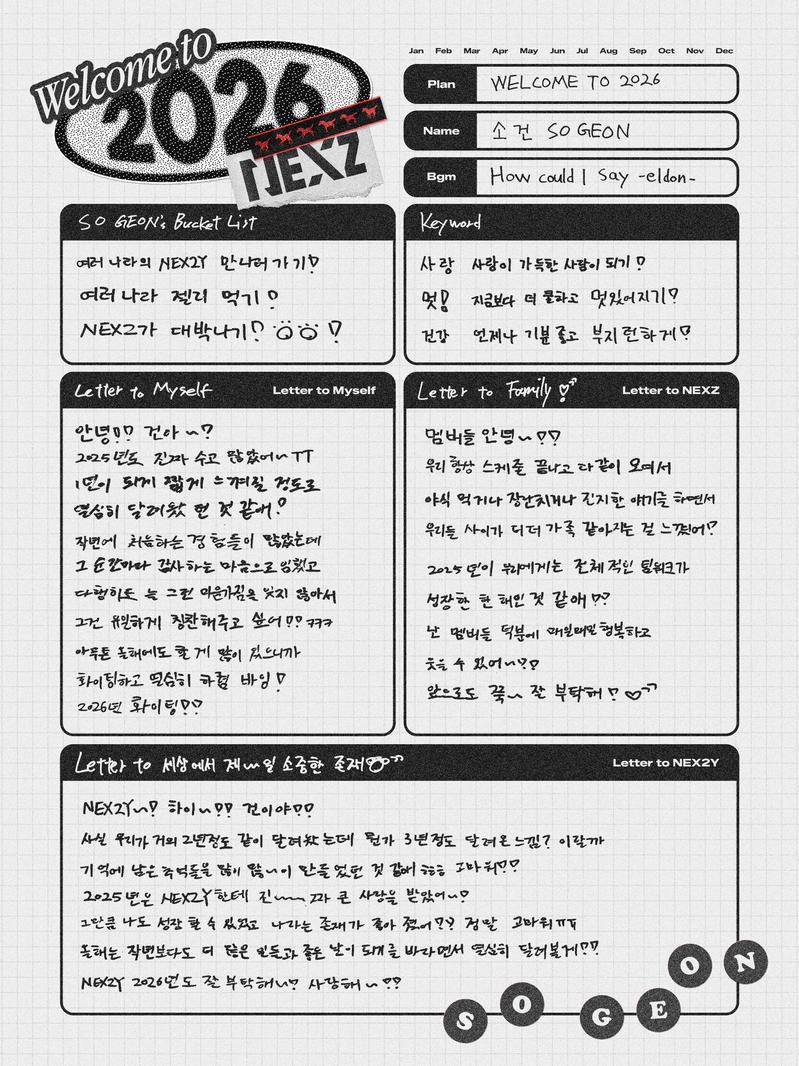 Welcome to
2026
NEXZ
Jan Feb Mar Apr May Jun Jul Aug Sep Oct Nov Dec
Plan WELCOME TO 2026
Name 소건 SO GEON
Bgm How could I say -eldon-
SO GEON's Bucket List
여러 나라의 NEX2Y 만나러 가기!
여러 나라 젤리 먹기!
NEXZ가 대박나기! !
Keyword
사랑 사랑이 가득한 사람이 되기!
멋! 지금보다 더 쿨하고 멋있어지기!
건강 언제나 기분 좋고 부지런하게!
Letter to Myself Letter to Myself
안녕!! 건아~?
2025년도 진짜 수고 많았어~ TT
1년이 되게 짧게 느껴질 정도로
열심히 달려왔던 것 같애!
작년에 처음하는 경험들이 많았는데
그 순간마다 감사하는 마음으로 임했고
다행히도 늘 그런 마음가짐을 잊지 않아서
그건 유일하게 칭찬해주고 싶어!! ㅋㅋㅋ
아무튼 올해에도 할 게 많이 있으니까
화이팅하고 열심히 하렴 바잉!
2026년 화이팅!!
Letter to Family Letter to NEXZ
멤버들 안녕~ ♡♡
우리 항상 스케줄 끝나고 다같이 모여서
야식 먹거나 장난치거나 진지한 얘기를 하면서
우리들 사이가 더더 가족 같아지는 걸 느꼈어!
2025년이 우리에게는 전체적인 팀워크가
성장한 한 해인 것 같애!!
난 멤버들 덕분에 매일매일 행복하고
웃을 수 있어~!!
앞으로도 꼭~ 잘 부탁해! ♡
Letter to 세상에서 제~일 소중한 존재 Letter to NEX2Y
NEX2Y~! 하이~!! 건이야!!
사실 우리가 거의 2년정도 같이 달려왔는데 뭔가 3년정도 달려온 느낌? 이랄까
기억에 남은 추억들을 많이 많~이 만들었던 것 같애 ㅎㅎㅎ 고마워!!
2025년은 NEX2Y한테 진~~짜 큰 사랑을 받았어~!
그만큼 나도 성장 할 수 있었고 나라는 존재가 좋아 졌어!! 정말 고마워ㅠㅠ
올해는 작년보다도 더 많은 일들과 좋은 날이 되기를 바라면서 열심히 달려볼게!!
NEX2Y 2026년도 잘 부탁해~! 사랑해~!!
SO GEON